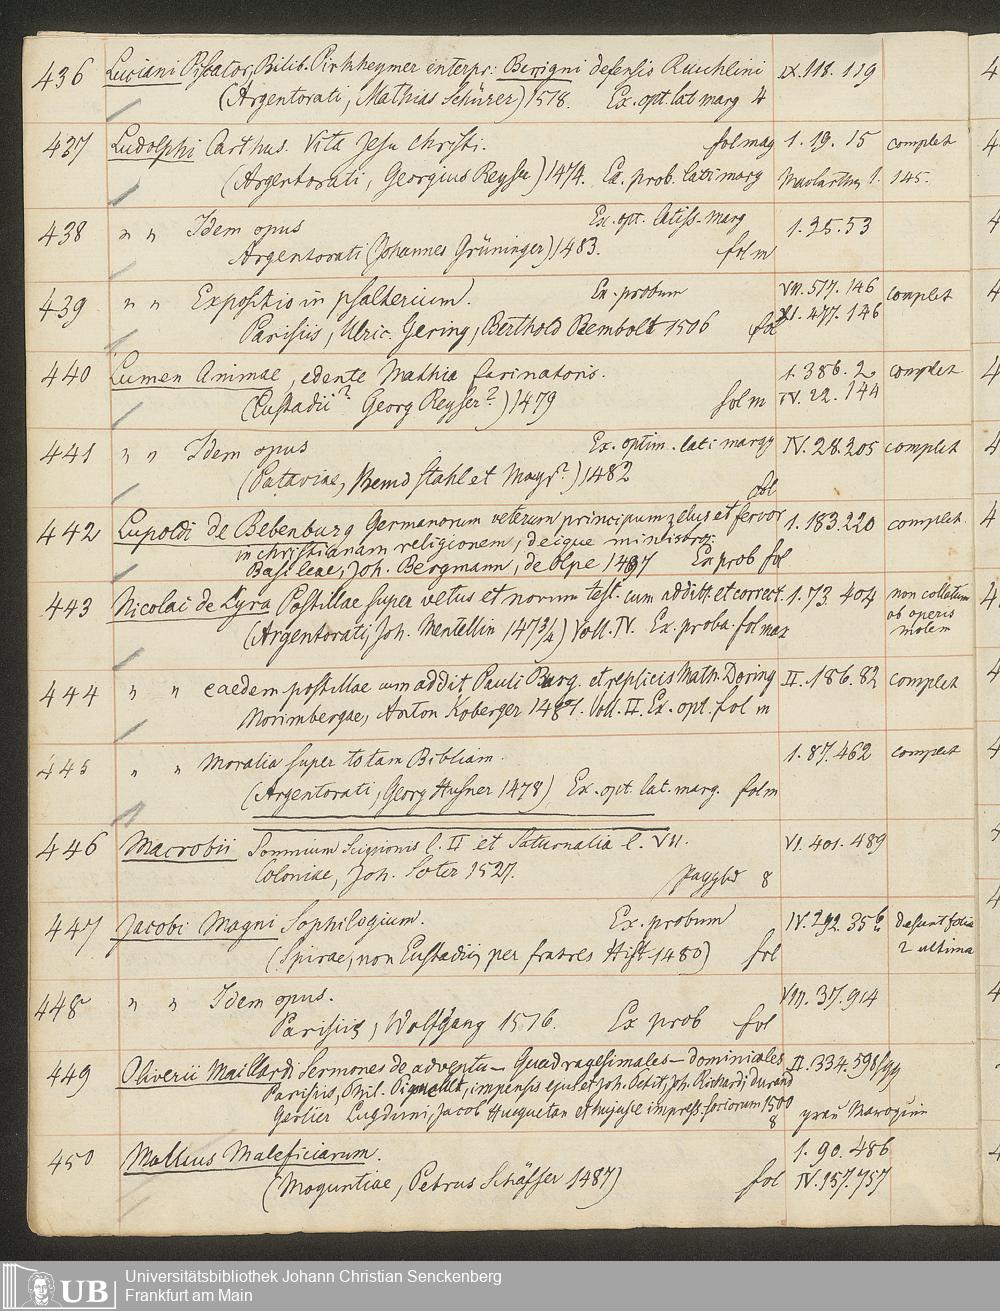 436 Luciani Piscator, Bilib. Pirkheymer interpr: Benigni defensio Reuchlini IX. 118. 119
(Argentorati, Mathias Schürer) 1518. Ex. opt. lat marg 4
437 Ludolphi Carthus. Vita Jesu Christi. fol mag 1. 19. 15 complet
(Argentorati, Georgius Reyser) 1474. Ex. prob. lati marg 1. 145.
438 " " Idem opus Ex. opt. latiss. marg 1. 25. 53
Argentorati (Johannes Grüninger) 1483. fol m
439 " " Expositio in psalterium. Ex. probum VII. 517. 146 complet
Parisiis, Ulric. Gering, Berthold Rembolt 1506 fol XI. 477. 146
440 Lumen Animae, edente Mathia farinatoris. 1. 386. 2 complet
(Eustadii? Georg Reyser?) 1479 fol m IV. 22. 144
441 " " Idem opus Ex. optim. lati marg IV. 28. 205 complet
(Pataviae, Stahl et Mayr?) 1482 fol
442 Lupoldi de Bebenburg Germanorum veterum principum zelus et fervor 1. 183. 220 complet
in christianam religionem, deique ministros:
Basileae, Joh. Bergmann, de Olpe 1497 Ex prob fol
443 Nicolai de Lyra Postillae super vetus et novum test. cum addit. et correct. 1. 73. 404 non collatum
ob operis
molem
(Argentorati, Joh. Mentellin 1473/4) Voll. IV. Ex. proba. fol max
444 " " eaedem postillae cum addit Pauli Burg. et replicis Math. Doring II. 186. 82 complet
Norimbergae, Anton Koberger 1487. Voll. II. Ex. opt. fol m
445 " " Moralia super totam Bibliam. 1. 87. 462 complet
(Argentorati, Georg Husner 1478) Ex. opt. lat. marg. fol m
446 Macrobii Somnium Scipionis l. II et Saturnalia l. VII. VI. 401. 489
Coloniae, Joh. Soter 1527. 8
447 Jacobi Magni Sophilogium. Ex. probum IV. 292. 356 desunt folia
2 ultima
(Spirae, non Eustadii, per fratres Hist 1480) fol
448 " " Idem opus. VIII. 37. 914
Parisiis, Wolffgang 1516. Ex prob fol
449 Oliverii Maillardi Sermones de adventu – Quadragesimales – dominicales II. 334. 598/99
Parisiis, Phil. Pigouchet, impensis ejus et Joh. Petit, Joh. Richard, Durand
Gerlier Lugduni, Jacob Huguetan et hujus impress. sociorum 1500
8
450 Malleus Maleficiarum. 1. 90. 486
(Moguntiae, Petrus Schäffer 1487) fol IV. 157. 757
UB Universitätsbibliothek Johann Christian Senckenberg
Frankfurt am Main